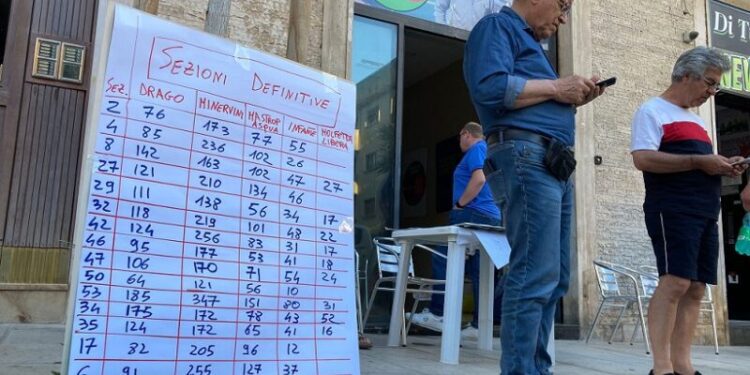 SEZIONI DEFINITIVE
SEZ. DRAGO MINERVINI MASTROP ASQUA INFANTE MOLFETTA LIBERA
2 76 173 77 55
4 85 236 102 26
8 142 163 102 47 27
27 121 210 134 46
29 111 138 56 34 17
32 118 219 101 48 22
42 124 256 83 31 17
46 95 177 53 41 18
47 106 170 71 54 24
50 64 121 56 10
53 185 347 151 80 31
34 175 172 78 43 52
35 124 172 65 41 16
17 82 205 96 12
6 91 255 127 37
Di T